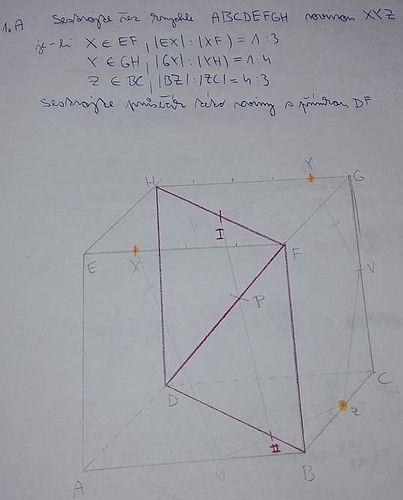 1.A Sestrojte řez krychle ABCDEFGH rovinou XYZ
je-li X ∈ EF, |EX| : |XF| = 1:3
Y ∈ GH, |GY| : |YH| = 1:4
Z ∈ BC, |BZ| : |ZC| = 4:3
Sestrojte průsečík této roviny s přímkou DF
H Y G
I
E X F
P V
D C
Z
II
A V B